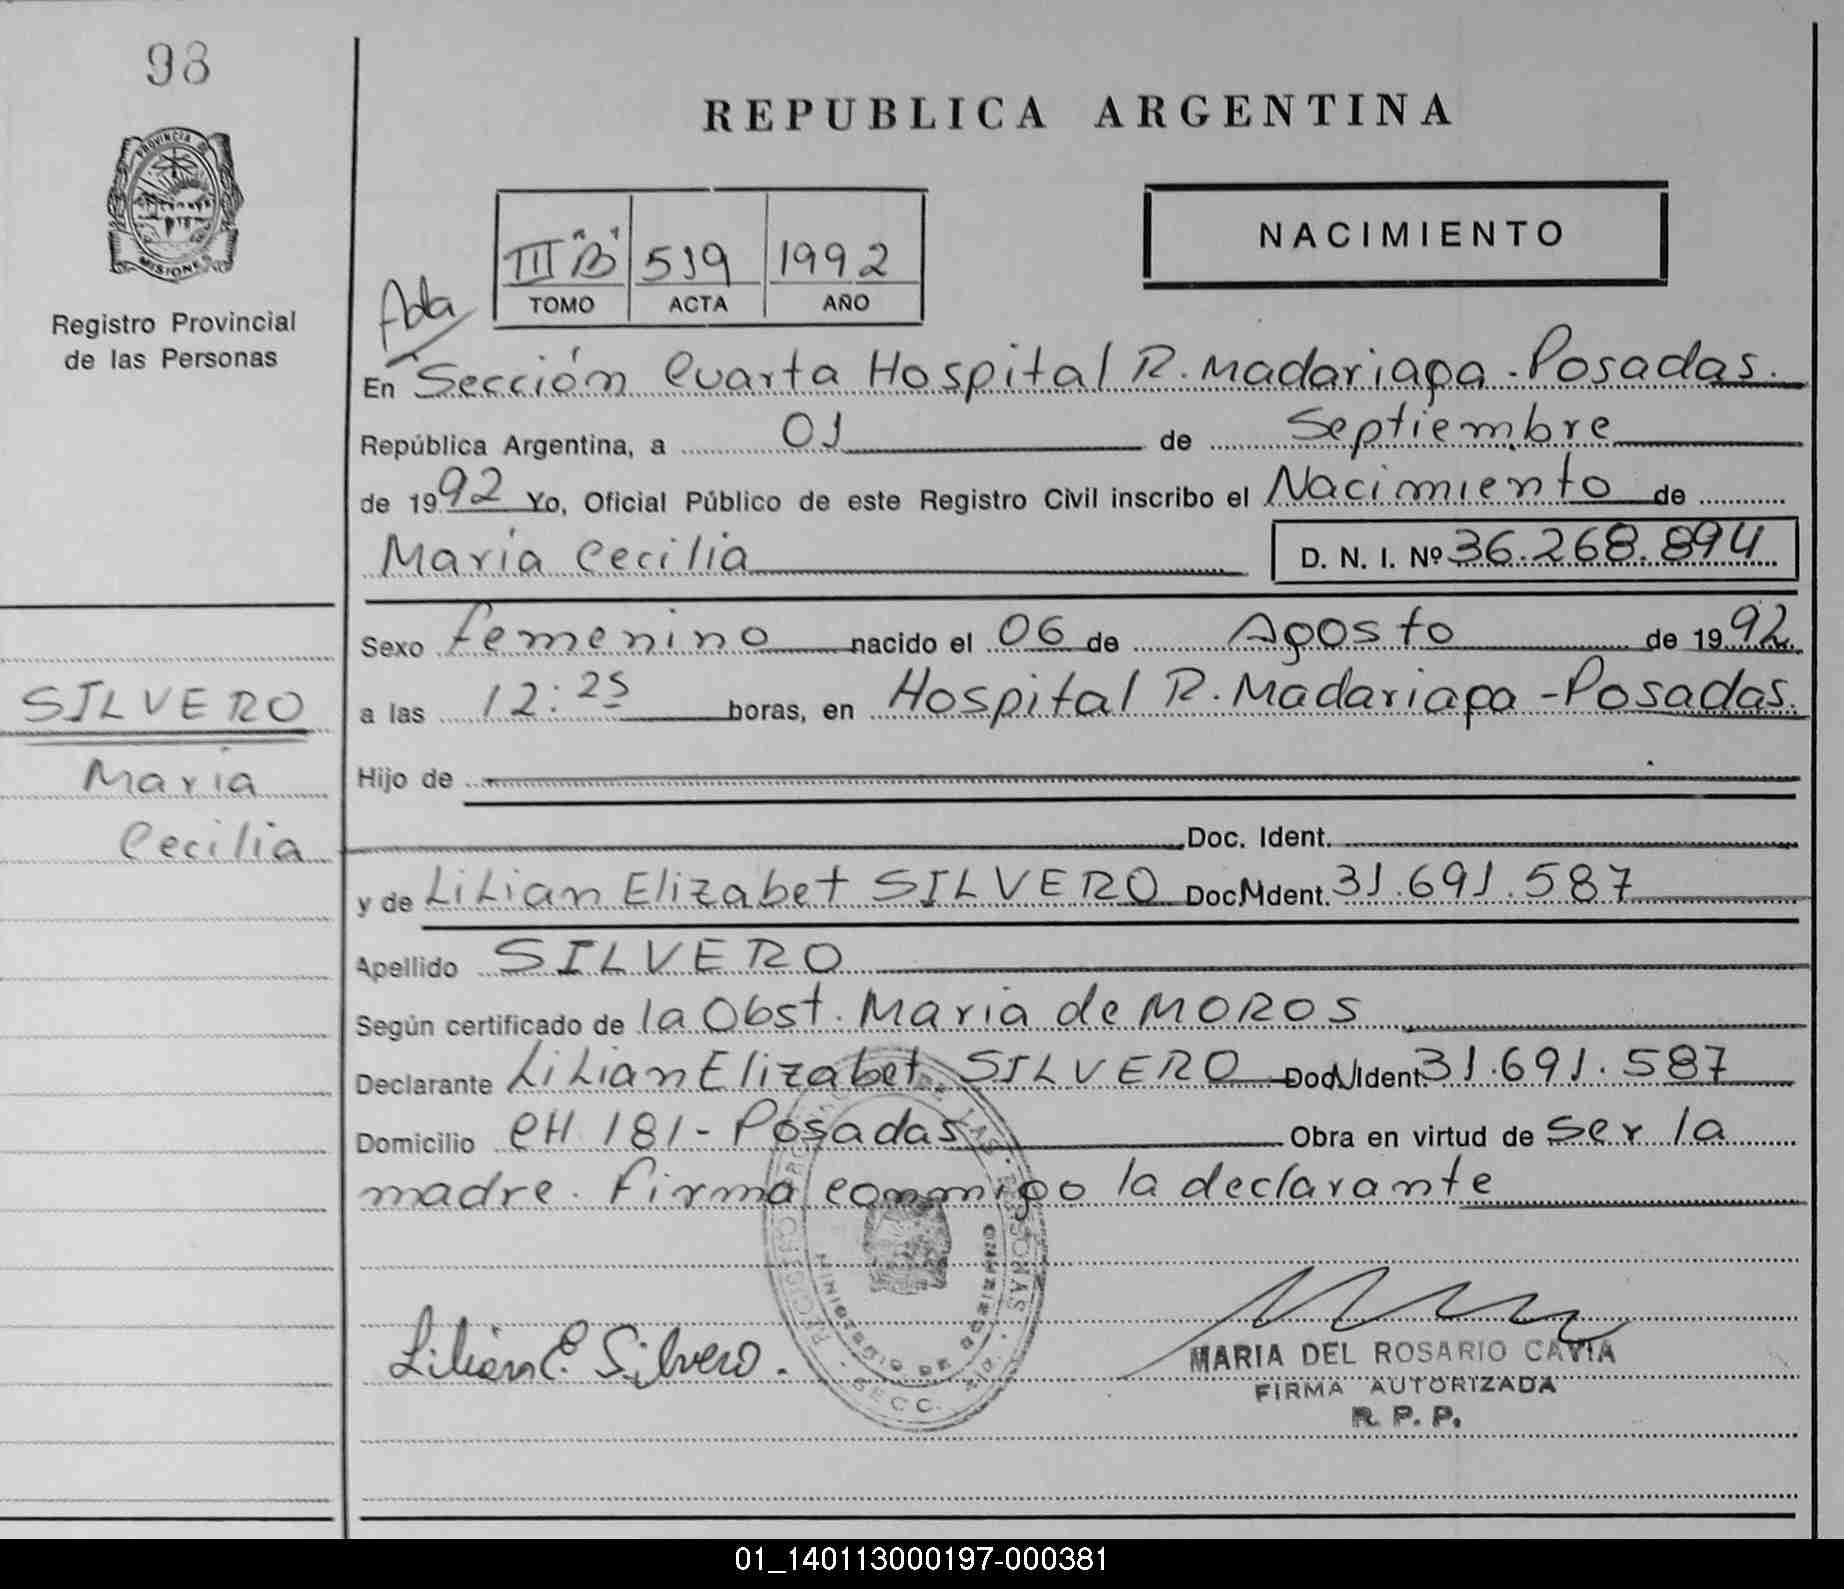 98
PROVINCIA DE
MISIONES
Registro Provincial
de las Personas
REPUBLICA ARGENTINA
NACIMIENTO
III "B" 519 1992
TOMO ACTA AÑO
En Sección Cuarta Hospital R. Madariaga - Posadas.
República Argentina, a 01 de Septiembre
de 1992 Yo, Oficial Público de este Registro Civil inscribo el Nacimiento de
María Cecilia D. N. I. Nº 36.268.894
Sexo femenino nacido el 06 de Agosto de 1992
SILVERO
a las 12:25 horas, en Hospital R. Madariaga - Posadas.
Maria
Hijo de
Cecilia
Doc. Ident.
y de Lilian Elizabet SILVERO Doc. Ident. 31.691.587
Apellido SILVERO
Según certificado de la Obst. Maria de MOROS
Declarante Lilian Elizabet SILVERO Doc. Ident. 31.691.587
Domicilio CH 181 - Posadas Obra en virtud de ser la
madre. Firma conmigo la declarante
Lilian E. Silvero.
MARIA DEL ROSARIO CAVIA
FIRMA AUTORIZADA
R. P. P.
01_140113000197-000381